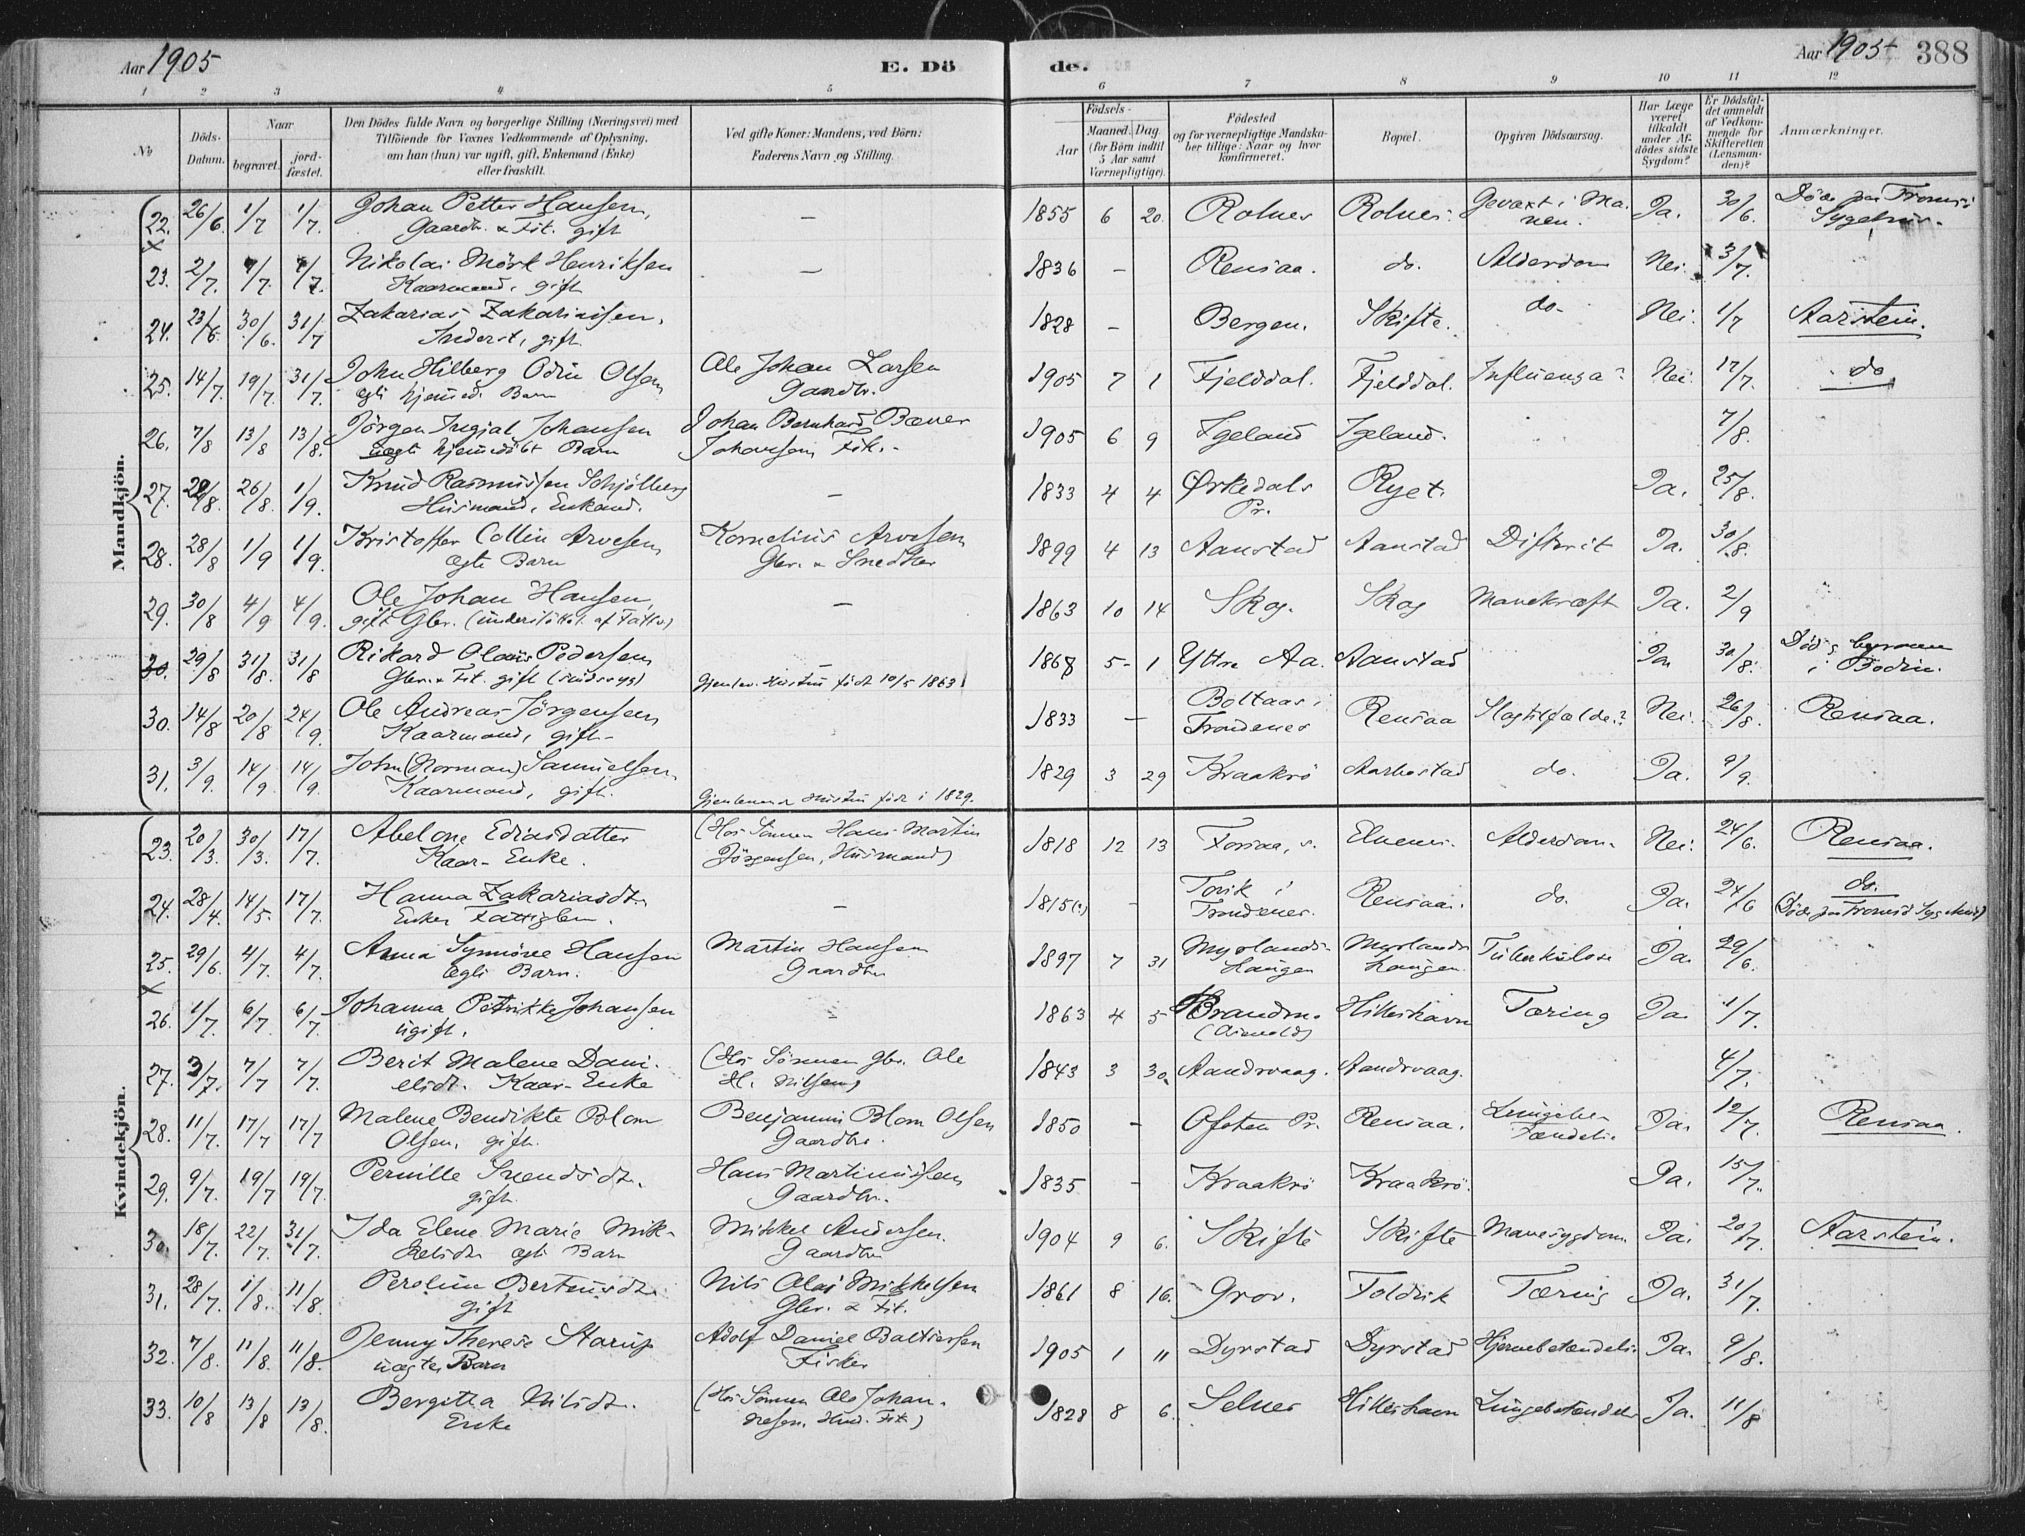 Aar 1905
E. Dö
de.
Aar 1905
388
1 2 3 4 5 6 7 8 9 10 11 12
No
Döds-Datum.
Naar
begravet.
jord-fæstet.
Den Dödes fulde Navn og borgerlige Stilling (Næringsvei) med
Tilföiende for Voxnes Vedkommende af Oplysning,
om han (hun) var ugift, gift, Enkemand (Enke)
eller fraskilt.
Ved gifte Koner: Mandens, ved Börn:
Faderens Navn og Stilling.
Födsels-
Aar
Maaned. Dag.
(for Börn indtil
5 Aar samt
Værnepligtige).
Födested
og for værnepligtige Mandska-
ber tillige: Naar og hvor
konfirmeret.
Bopæl.
Opgiven Dödsaarsag.
Har Læge
været
tilkaldt
under Af-
dödes sidste
Sygdom?
Er Dödsfal-
det anmeldt
af Vedkom-
mende for
Skifteretten
(Lensman-
den)?
Anmærkninger.
Mandkjön.
22. 26/6. 1/7 1/7. Johan Petter Hansen, — 1855 6 20. Rolnes Rolnes. Gevæxt i Ma- Ja. 30/6. Döde paa Tromsö
Gaardbr. & Fisk. gift nen. Sygehus.
23. 2/7. 4/7. 4/7. Nikolai Mörk Henriksen — 1836 — Rensaa. do. Alderdom Nei. 3/7.
Kaarmand, gift
24. 23/6. 30/6. 31/7 Zakarias Zakariassen, 1828 — Bergen. Skifte. do. Nei. 1/7 Aarstein.
Inderst, gift
25. 14/7. 19/7. 31/7. John Hilberg Odin Olsen Ole Johan Larsen 1905 7 1 Fjelddal. Fjelddal. Influenza? Nei. 17/7. do
ægte hjemmed. Barn Gaardbr.
26. 7/8 13/8 13/8. Jörgen Ingjal Johansen Johan Bernhard Bæver 1905 6 9 Igeland Igeland. 7/8.
uægte hjemmedöbt Barn Johansen Fisk.
27. 20/8. 26/8. 1/9. Knud Rasmussen Schjölberg — 1833 4 4 Ørkedals Ryet. Ja. 25/8.
Husmand, Enkemd. Pr.
28. 28/8 1/9 1/9. Kristoffer Collin Arvesen Kornelius Arvesen 1899 4 13 Aanstad Aanstad Difterit Ja. 30/8.
ægte Barn Gbr. & Snedker
29. 30/8 4/9 4/9. Ole Johan Hansen, — 1863 10 14 Skog. Skog Mavekræft Ja. 2/9
gift Gbr. (understöttet af Fattv.)
30. 29/8 31/8. 31/8 Rikard Olaus Pedersen — 1868 5 1 Yttre Aa. Aanstad Ja 30/8.
Gbr. & Fisk. gift (sindssyg) Gjenlev. Hustru födt 10/5 1863 i Bodin.
30. 14/8 20/8 24/9. Ole Andreas Jörgensen 1833 — Boltaas i Rensaa Slagtilfælde? Nei. 26/8. Rensaa.
Kaarmand, gift Trondenes
31. 3/9. 14/9. 14/9. John (Norman) Samuelsen, 1829 3 29 Kraakrö Aarbostad do. Ja. 9/9.
Kaarmand, gift. Gjenlevende Hustru födt i 1829.
Kvindekjön.
23. 20/3. 30/3. 17/7. Abelone Ediasdatter (Hos Sönnen Hans Martin 1818 12 13 Forsaa, Elvenes. Alderdom. Nei. 24/6. Rensaa.
Kaar-Enke. Jörgensen, Husmand)
24. 28/4. 14/5. 17/7. Hanna Zakariasdtr. — 1815(?) — i Rensaa. do. Ja. 24/6 do.
Enke Fattiglem. Trondenes. (Döde paa Tromsö Sygehus)
25. 29/6. 4/7. 4/7. Anna Synnöve Hansen Martin Hansen 1897 7 31 Myrlands- Myrlands- Tuberkulose Ja. 29/6.
ægte Barn. Gaardbr haugen haugen
26. 1/7. 6/7. 6/7. Johanna Petrikke Johansen — 1863 4 5 Brandvn. Hilleshavn Tæring Ja 1/7.
ugift.
27. 3/7. 7/7 7/7. Berit Malene Dani- (Hos Sönnen Gbr. Ole 1843 3 30. Aandrvaag. Aandrvaag. 4/7.
elsdt. Kaar-Enke H. Nilsen)
28. 11/7. 17/7 17/7 Malene Bendikte Blom Benjamin Blom Olsen 1850 — Ofoten Pr. Rensaa. Lungebe- Ja. 12/7. Rensaa.
Olsen, gift. Gaardbr. tændelse
29. 9/7. 19/7 19/7. Pernille Svendsdt. Hans Martinussen 1835 — Kraakrö Kraakrö. Ja. 15/7.
gift. Gaardbr.
30. 18/7. 22/7. 31/7. Ida Elene Marie Mik- Mikkel Andersen. 1904 9 6. Skifte Skifte Mavesygdom Ja. 20/7. Aarstein.
kelsdt. ægte Barn Gaardbr
31. 28/7. 1/8. 11/8. Peroline Bertusdt. Nils Olai Mikkelsen 1861 8 16. Grov. Foldvik Tæring Ja. 31/7.
gift Gbr. & Fisk.
32. 7/8. 11/8. 11/8. Jenny Therese Starup Adolf Daniel Baltsersen 1905 1 11 Dyrstad Dyrstad Hjernebetændelse Ja. 9/8.
uægte Barn Fisker
33. 10/8 13/8 13/8. Bergitta Nilsdt. (Hos Sönnen Ole Johan- 1828 8 6. Selnes Hilleshavn Lungebetændelse Ja. 11/8
Enke nesen, Husm. Fisk.)